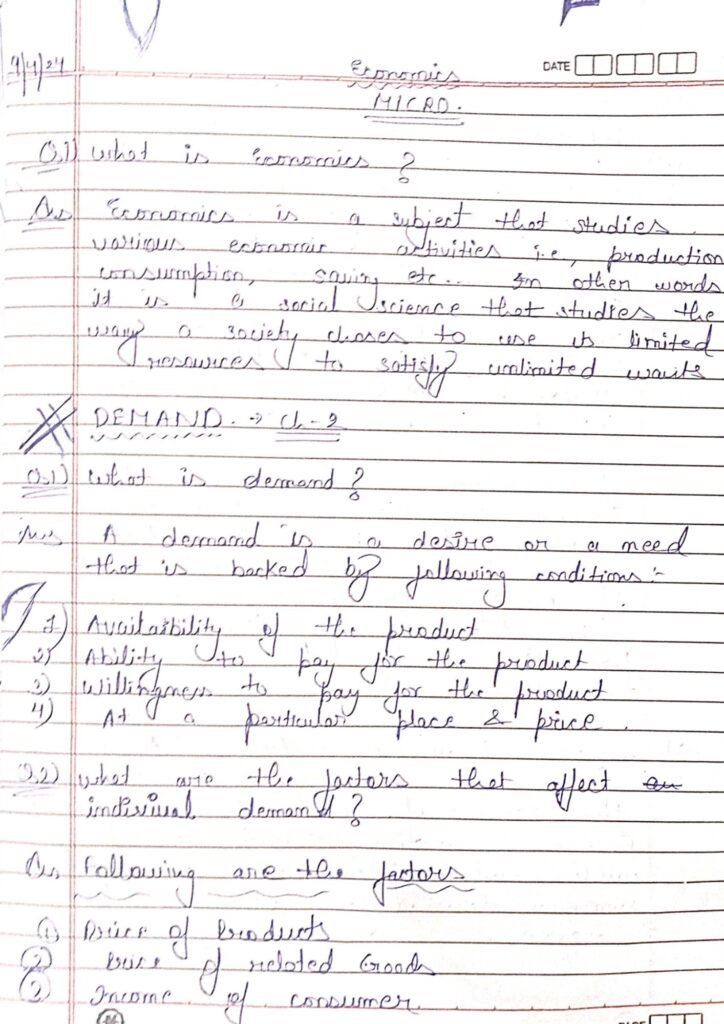 9/4/24
DATE
Economics
MICRO.
Q.1) what is Economics ?
Ans Economics is a subject that studies
various economic activities i.e., production
consumption, saving etc.. In other words
it is a social science that studies the
way a society choses to use its limited
resources to satisfy unlimited wants
DEMAND. → Ch-2
Q.1) What is demand ?
Ans A demand is a desire or a need
that is backed by following conditions:-
1) Availaibility of the product
2) Ability to pay for the product
3) Willingness to pay for the product
4) At a particular place & price.
Q.2) what are the factors that affect
indiviual demand ?
Ans Following are the factors
① Price of Products
② Price of related Goods
③ Income of consumer